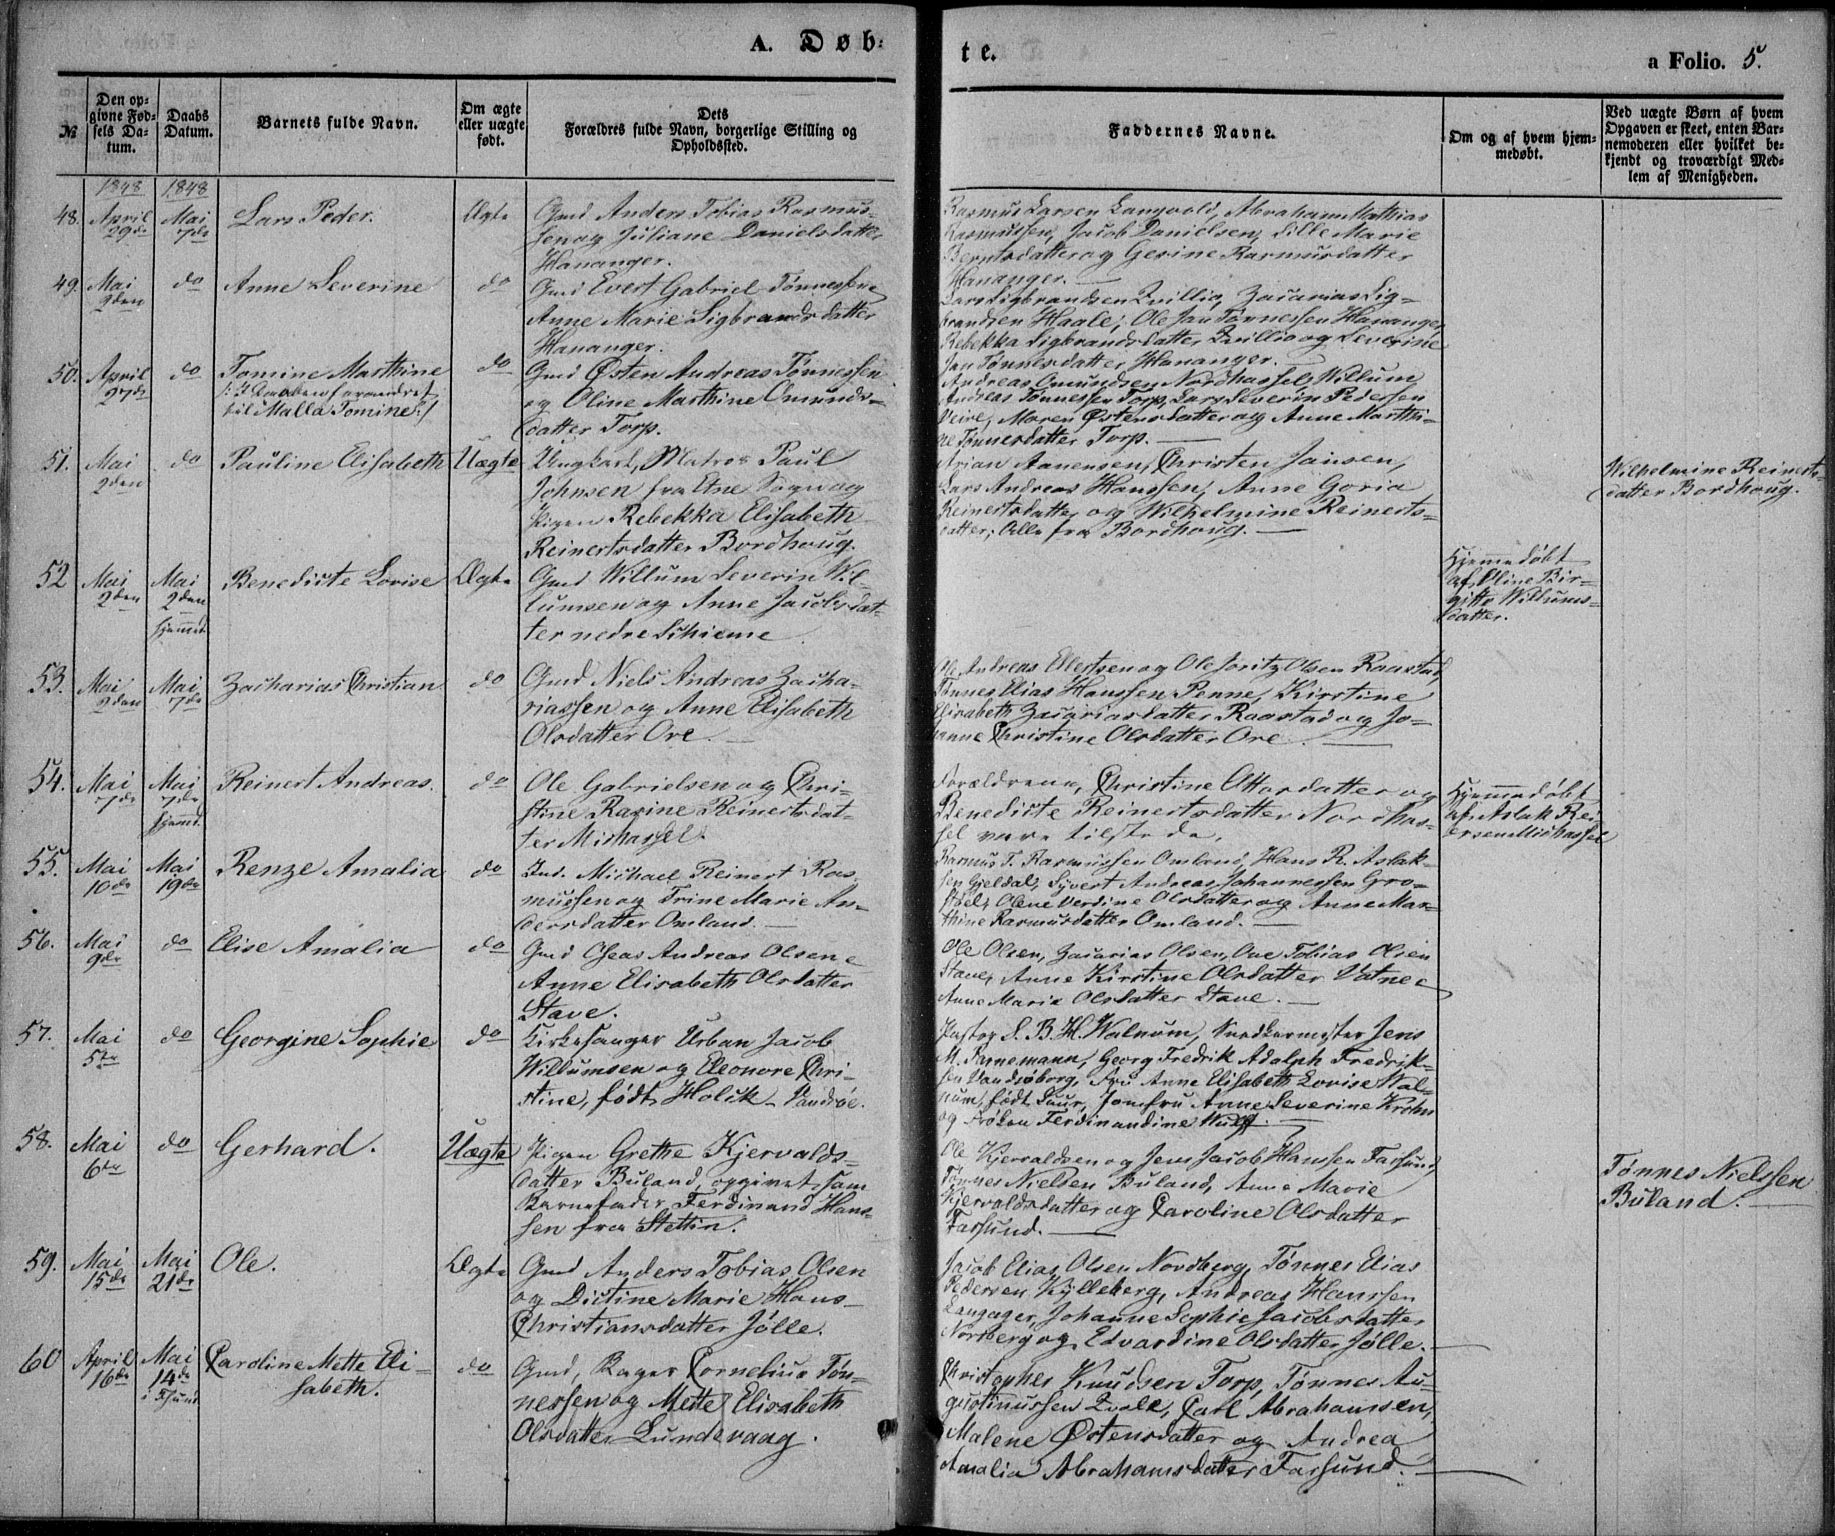 A. Døb=
te.
a Folio. 5.
№
Den op=
givne Fød=
sels Da=
tum.
Daabs
Datum.
Barnets fulde Navn.
Om ægte
eller uægte
født.
Dets
Forældres fulde Navn, borgerlige Stilling og
Opholdssted.
Faddernes Navne.
Om og af hvem hjem=
medøbt.
Ved uægte Børn af hvem
Opgaven er skeet, enten Bar=
nemoderen eller hvilket be=
kjendt og troværdigt Med=
lem af Menigheden.
1848 1848
48. April 29de Mai 7de Lars Peder. Ægte
Gmd Anders Tobias Rasmus=
sen og Juliane Danielsdatter
Hananger.
Rasmus Larsen Langvold, Abraham Mathias
Rasmussen, Jacob Danielsen, Sille Marie
Berntsdatter og Gesine Rasmusdatter
Hananger.
49. Mai 2den do Anne Severine do
Gmd Evert Gabriel Tønnessen
Anne Marie Sigbrandsdatter
Hananger.
Lars Sigbrandsen Qvillio, Zacarias Sig=
brandsen Haale, Ole Jan Tønnessen Hananger,
Rebekka Sigbrandsdatter Qvillio og Severine
Jan Tønnesdatter Hananger.
50. April 27de do Tomine Marthine do
/: I Daaben forandret
til Malla Tomine :/
Gmd Østen Andreas Tønnessen
og Oline Marthine Omunds=
datter Torp.
Andreas Omundsen Nordhassel, Willum
Andreas Tønnessen Torp, Lars Severin Pedersen
Veire, Maren Østensdatter og Anne Marthi=
ne Tønnesdatter Torp.
51. Mai 2den do Pauline Elisabeth Uægte
Ungkarl, Matros Paul
Johnsen fra Ane Sogn og
Pigen Rebekka Elisabeth
Reinertsdatter Bordhoug.
Arian Aanensen, Christen Jansen,
Lars Andreas Hanssen, Anne Goria
Reinertsdatter og Wilhelmine Reinerts=
datter, Alle fra Bordhoug.
Wilhelmine Reinerts=
datter Bordhoug.
52 Mai 2den Mai 2den hjemmet Benedicte Lovise Ægte
Gmd Willum Severin Wil=
lumsen og Anne Jacobsdat=
ter nedre Skieime
Hjemmedøbt
af Oline Bir=
gitte Willums=
datter.
53. Mai 2den Mai 7de Zacharias Christian do
Gmd Niels Andreas Zacha=
riassen og Anne Elisabeth
Olsdatter Ore.
Ole Andreas Ellertsen og Ole Loritz Olsen Raastad,
Tønnes Elias Hanssen Penne, Kirstine
Elisabeth Zacariasdatter Raastad og Jo=
hanne Christine Olsdatter Ore.
54. Mai 7de Mai 7de hjemmet Reinert Andreas. do
Ole Gabrielsen og Chri=
stine Rasine Reinertsdat=
ter Midhassel
Forældrene, Christine Ottosdatter og
Benedicte Reinertsdatter Nordhas=
sel vare tilstede.
Hjemmedøbt
af Aslak Rei=
ersen Midhassel
55. Mai 10de Mai 19de Renze Amalia do
Ind. Michael Reinert Ras=
mussen og Trine Marie An=
dersdatter Omland.
Rasmus T. Rasmussen Omland, Hans R. Aslak=
sen Gjeldal, Syvert Andreas Johannessen Gro=
støel, Olene Verdine Olsdatter og Anne Mar=
thine Rasmusdatter Omland.
56. Mai 9de do Elise Amalia do
Gmd Cheas Andreas Olsen e
Anne Elisabeth Olsdatter
Stave.
Ole Olsen, Zacarias Olsen, Ove Tobias Olsen
Stave, Anne Kirstine Olsdatter Vatne e
Anne Marie Olsdatter Stave.
57. Mai 5te do Georgine Sophie do
Kirkesanger Urban Jacob
Willumsen og Eleonore Chri=
stine, født Holck Vandsøe.
Pastor S. B. H. Walnum, Snedkermester Jens
M. Pannemann, Georg Fredrik Adolph Fredrik=
sen Vandsøborg, Fru Anne Elisabeth Lovise Wal=
num, født Lauer, Jomfru Anne Severine Krohn
og Frøken Ferdinandine Wulff.
58. Mai 6te do Gerhard. Uægte
Pigen Grethe Kjervalds=
datter Buland, opgivet som
Barnefader Ferdinand Hans=
sen fra Stettin.
Ole Kjervaldsen og Jens Jacob Hanssen Farsund,
Tønnes Nielsen Buland, Anne Marie
Kjervaldsdatter og Caroline Olsdatter
Farsund.
Tønnes Nielssen
Buland.
59. Mai 15de Mai 21de Ole. Ægte
Gmd Anders Tobias Olsen
og Dictine Marie Hans=
Christiansdatter Jølle.
Jacob Elias Olsen Nordberg, Tønnes Elias
Pedersen Kylleberg, Andreas Hanssen
Langager, Johanne Sophie Jacobsdatter
Norberg og Edvardine Olsdatter Jølle.
60 April 16de Mai 14de i Fsund Caroline Mette Eli=
sabeth. do
Gmd, Bager Cornelius Tøn=
nessen og Mette Elisabeth
Olsdatter Lundevaag.
Christopher Knudsen Torp, Tønnes Au=
gustinussen Qvale, Carl Abrahamsen,
Malene Østensdatter og Andrea
Amalia Abrahamsdatter Farsund.